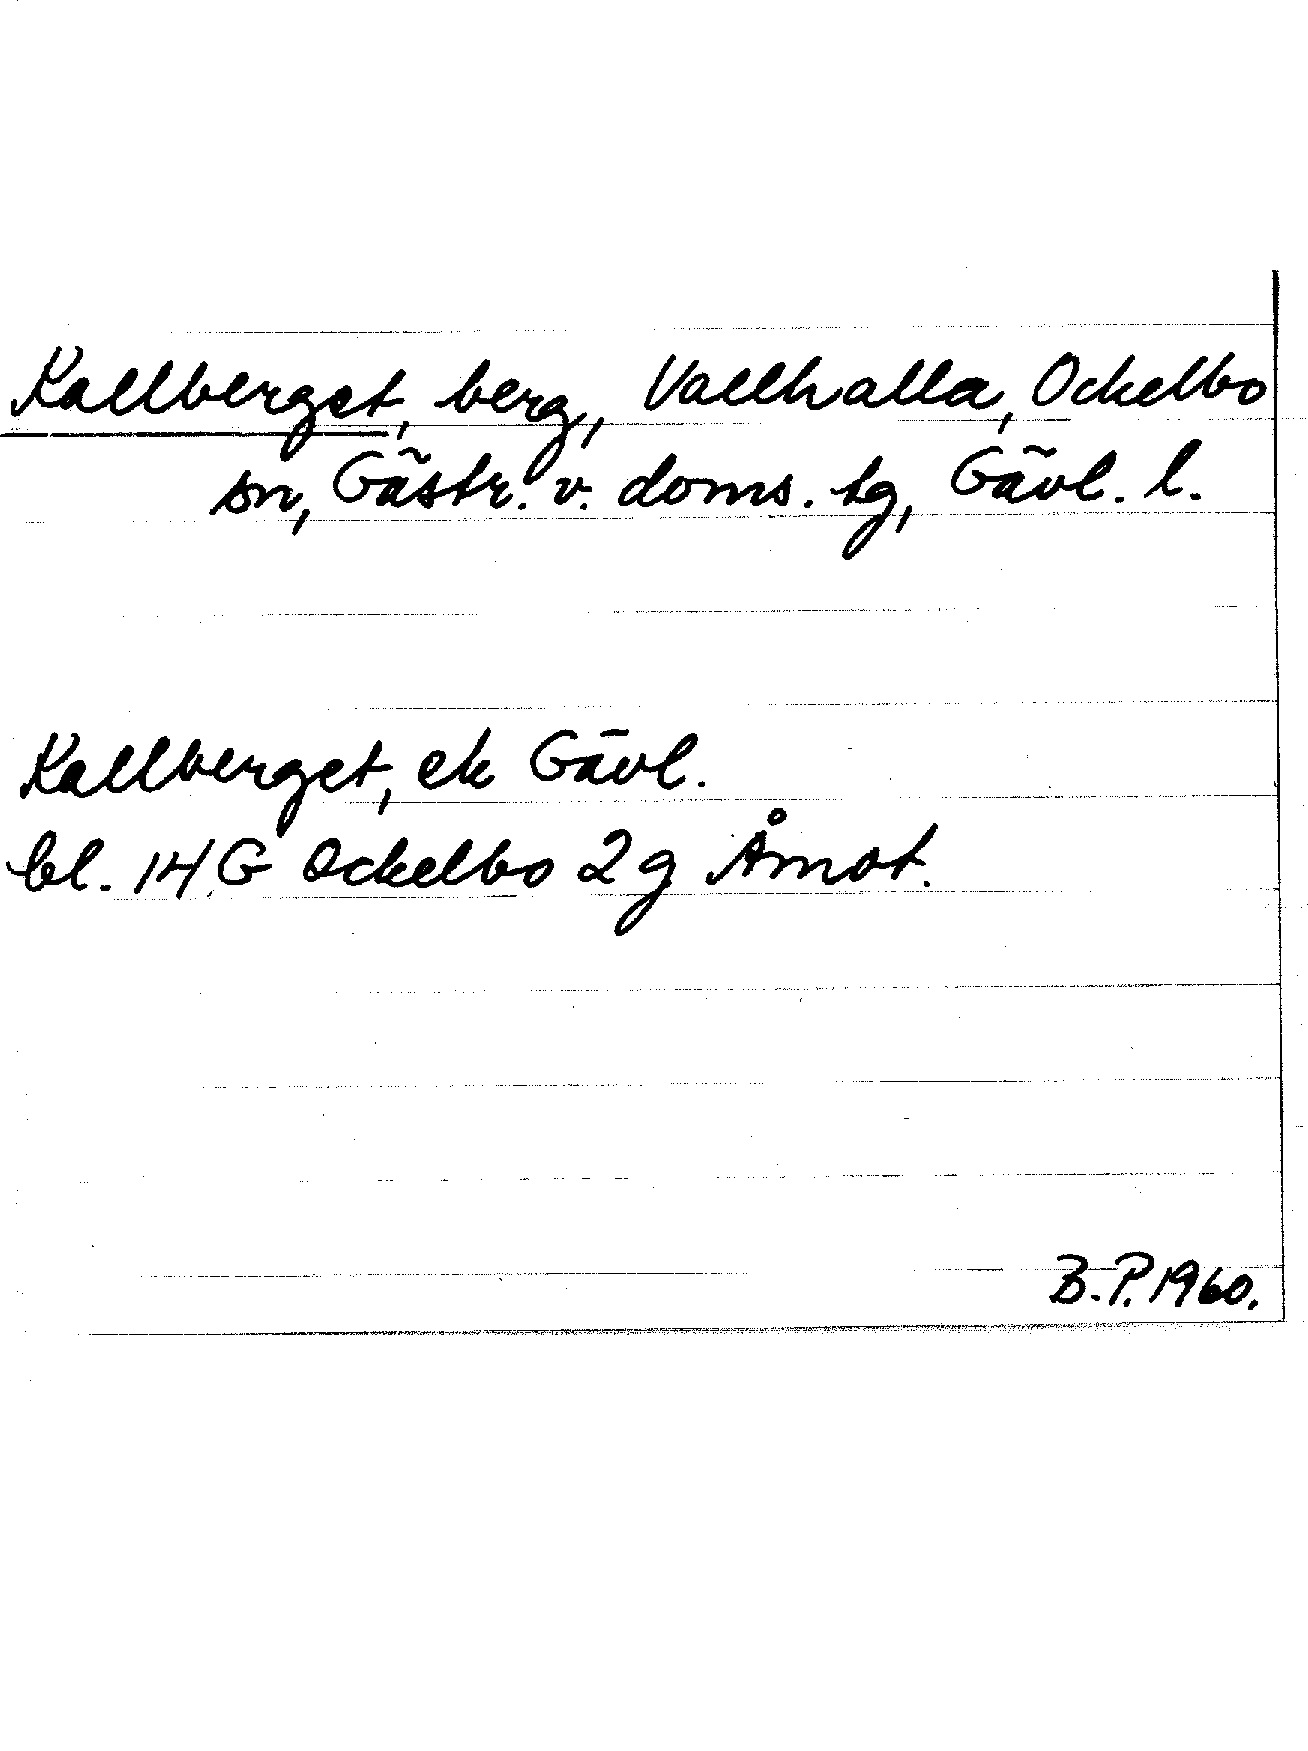 Kallberget, berg, Vallhalla, Ockelbo
sn, Gästr. v. doms. tg, Gävl. l.
Kallberget, ek Gävl.
bl. 14 G Ockelbo 2 g Åmot.
B. P. 1960.